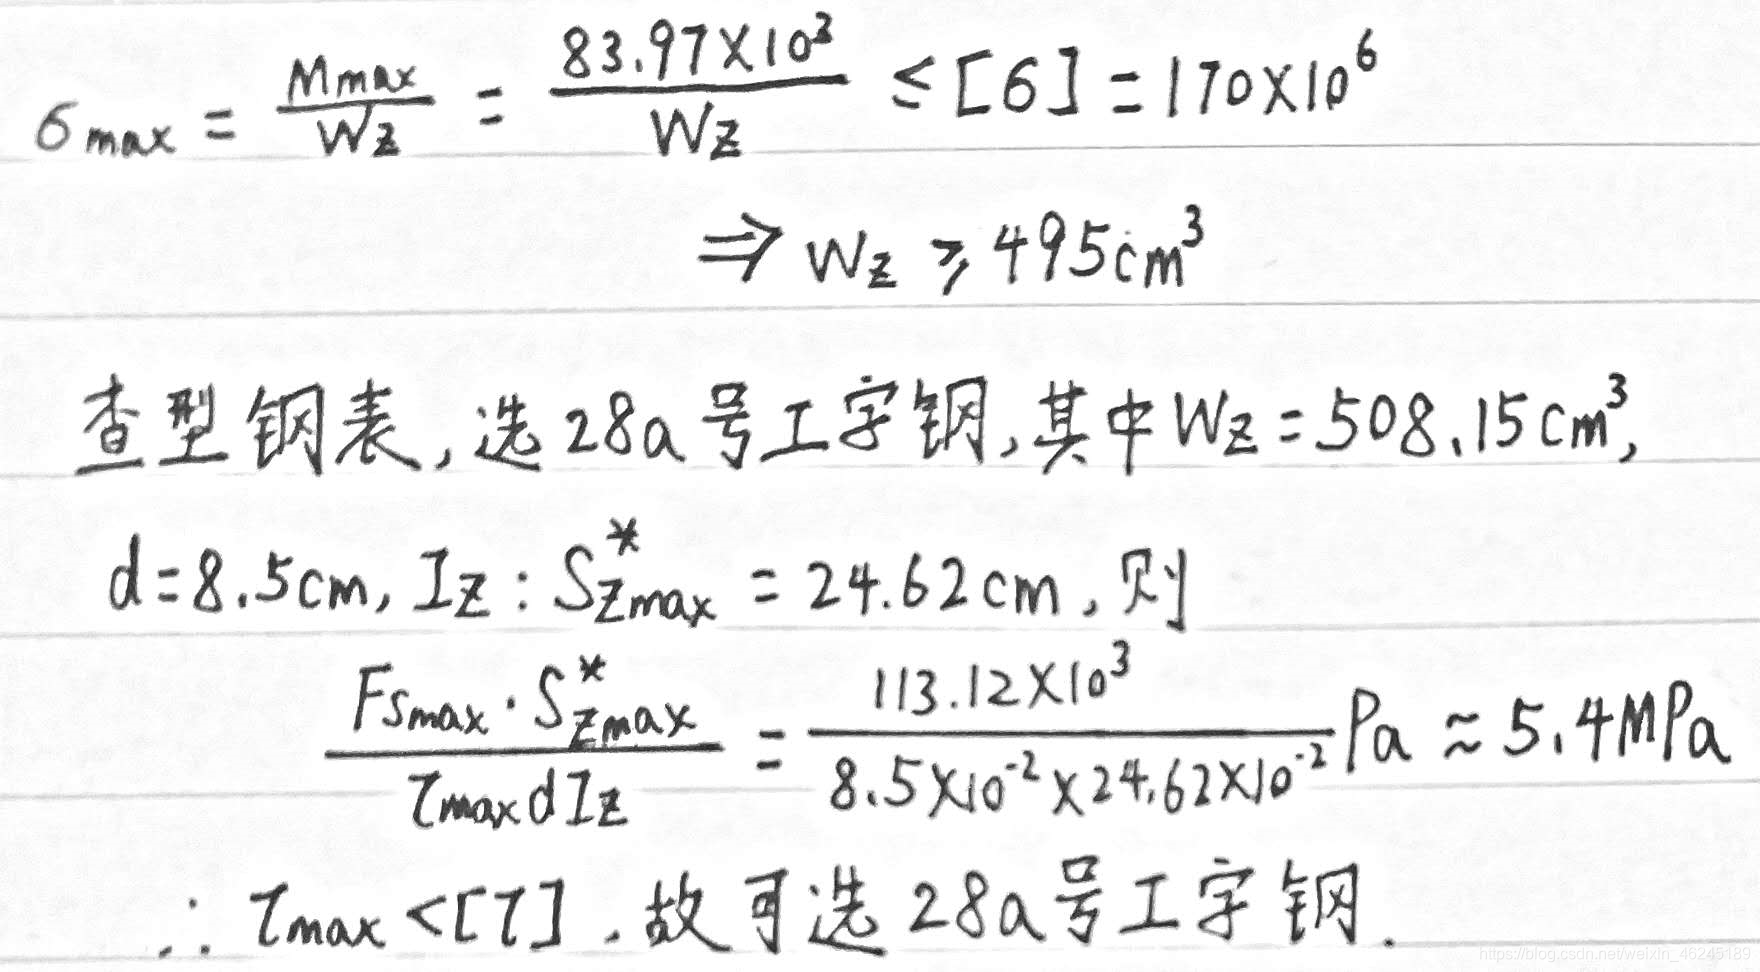 σmax = Mmax/Wz = 83.97×10³/Wz ≤ [σ] = 170×10⁶
⇒ Wz ≥ 495cm³
查型钢表,选28a号工字钢,其中Wz=508.15cm³,
d=8.5cm, Iz : S*zmax = 24.62cm, 则
Fsmax·S*zmax/τmaxdIz = 113.12×10³/8.5×10⁻²×24.62×10⁻² Pa ≈ 5.4MPa
∴ τmax<[τ].故可选28a号工字钢.
https://blog.csdn.net/weixin_46245189